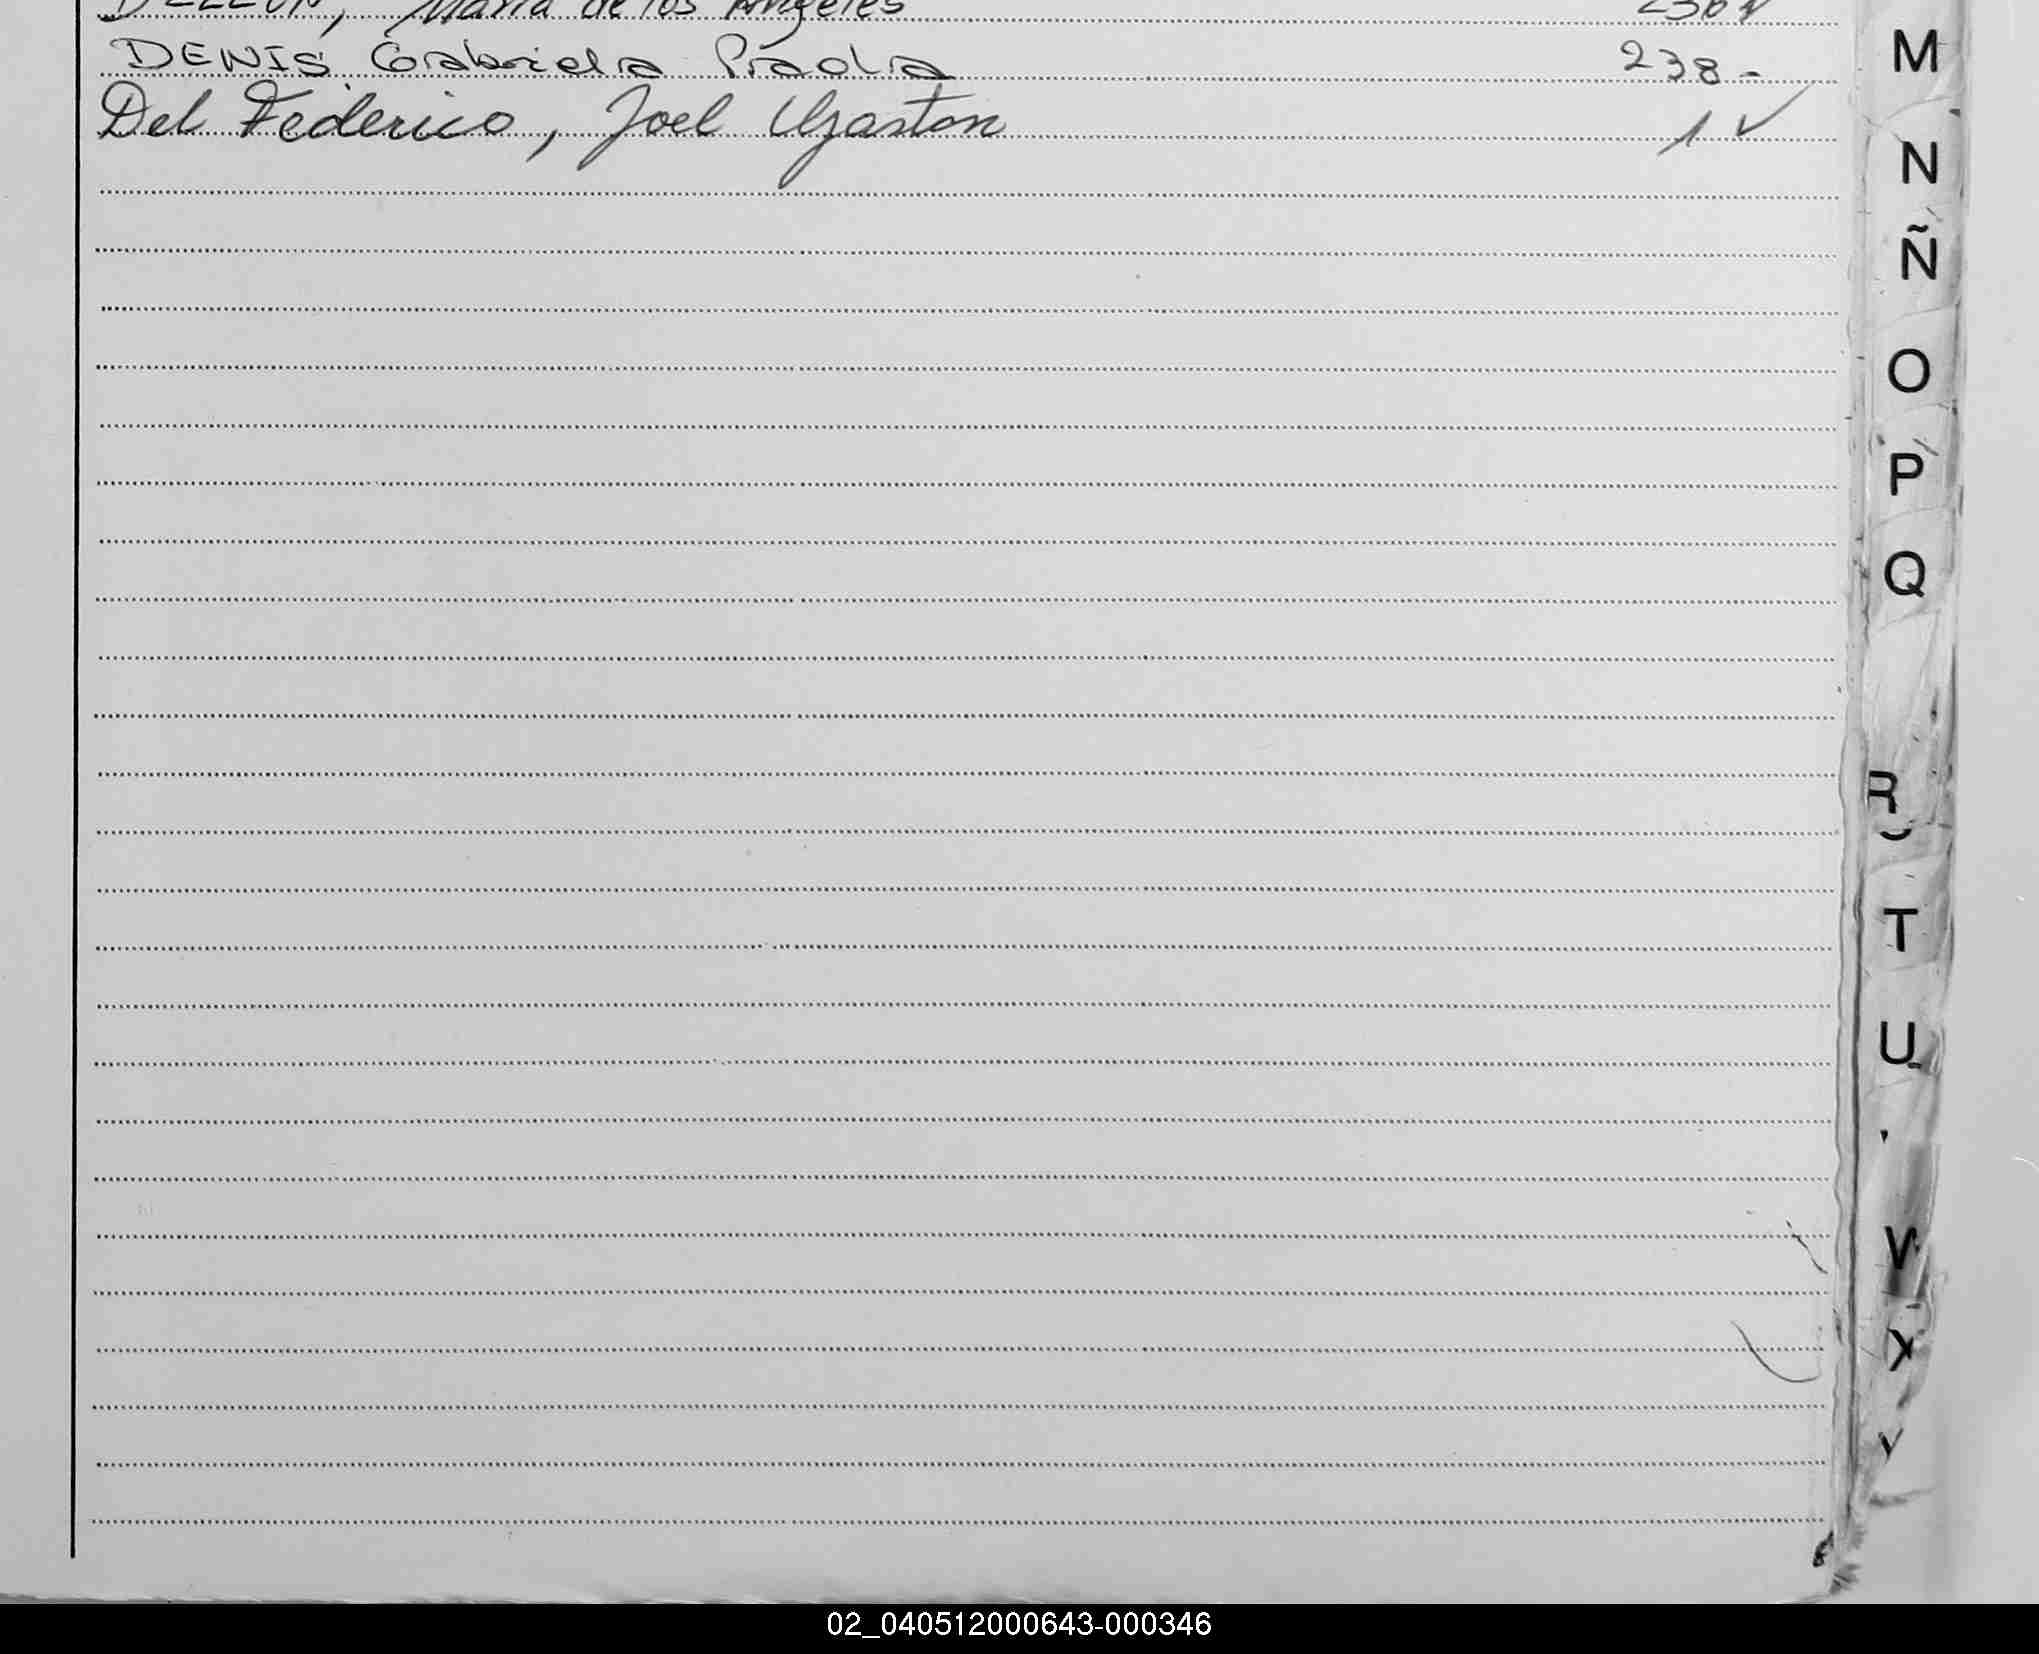 María de los Angeles
DENIS Gabriela Paola 238-
Del Federico, Joel Gaston 1 ✓
M
N
Ñ
O
P
Q
R
T
U
W
X
Y
02_040512000643-000346